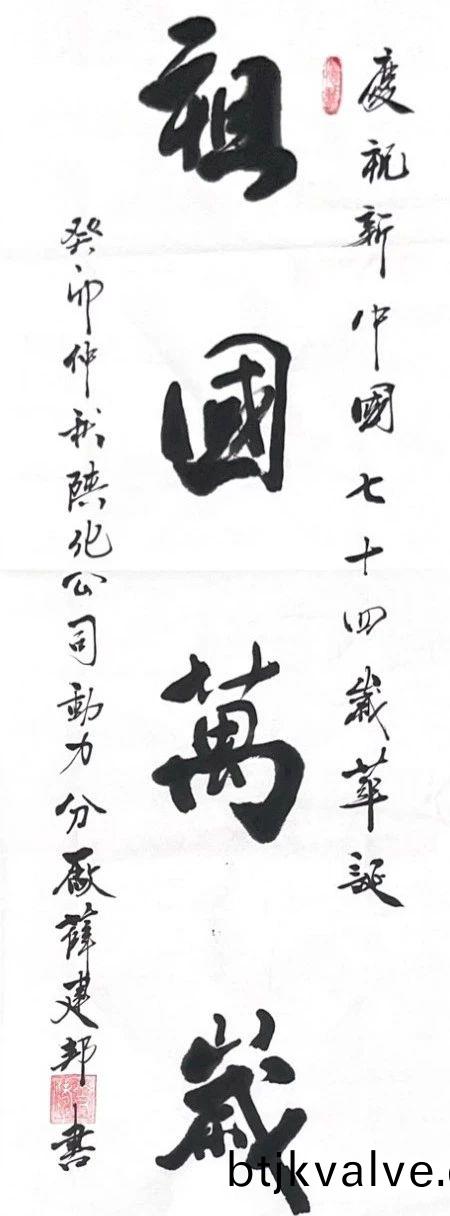 慶祝新中國七十四歲華誕
祖國萬歲
癸卯仲秋陝化公司動力分廠薛建邦書
btjkvalve.c